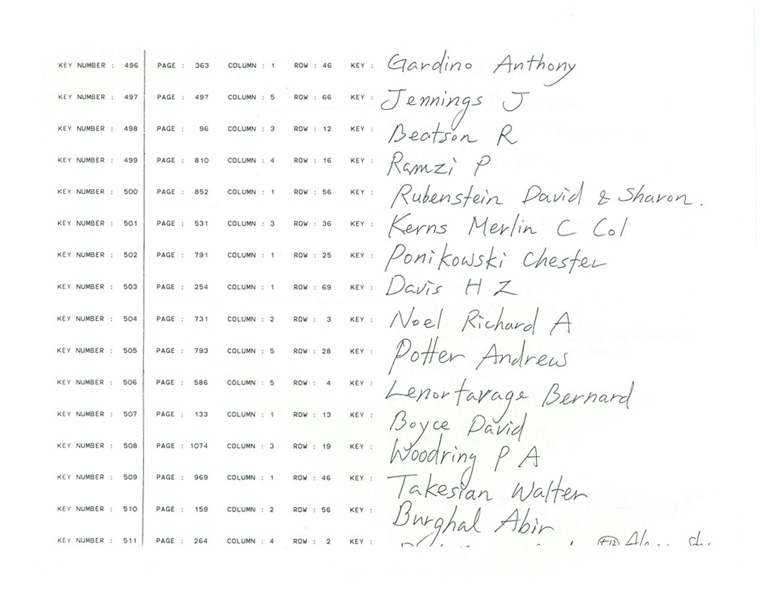 KEY NUMBER : 496 PAGE : 363 COLUMN : 1 ROW : 46 KEY : Gardino Anthony
KEY NUMBER : 497 PAGE : 497 COLUMN : 5 ROW : 66 KEY : Jennings J
KEY NUMBER : 498 PAGE : 96 COLUMN : 3 ROW : 12 KEY : Beatson R
KEY NUMBER : 499 PAGE : 810 COLUMN : 4 ROW : 16 KEY : Ramzi P
KEY NUMBER : 500 PAGE : 852 COLUMN : 1 ROW : 56 KEY : Rubenstein David & Sharon.
KEY NUMBER : 501 PAGE : 531 COLUMN : 3 ROW : 36 KEY : Kerns Merlin C Col
KEY NUMBER : 502 PAGE : 791 COLUMN : 1 ROW : 25 KEY : Ponikowski Chester
KEY NUMBER : 503 PAGE : 254 COLUMN : 1 ROW : 69 KEY : Davis H Z
KEY NUMBER : 504 PAGE : 731 COLUMN : 2 ROW : 3 KEY : Noel Richard A
KEY NUMBER : 505 PAGE : 793 COLUMN : 5 ROW : 28 KEY : Potter Andrew
KEY NUMBER : 506 PAGE : 586 COLUMN : 5 ROW : 4 KEY : Lenortavage Bernard
KEY NUMBER : 507 PAGE : 133 COLUMN : 1 ROW : 13 KEY : Boyce David
KEY NUMBER : 508 PAGE : 1074 COLUMN : 3 ROW : 19 KEY : Woodring P A
KEY NUMBER : 509 PAGE : 969 COLUMN : 1 ROW : 46 KEY : Takesian Walter
KEY NUMBER : 510 PAGE : 159 COLUMN : 2 ROW : 56 KEY : Burghal Abir
KEY NUMBER : 511 PAGE : 264 COLUMN : 4 ROW : 2 KEY :